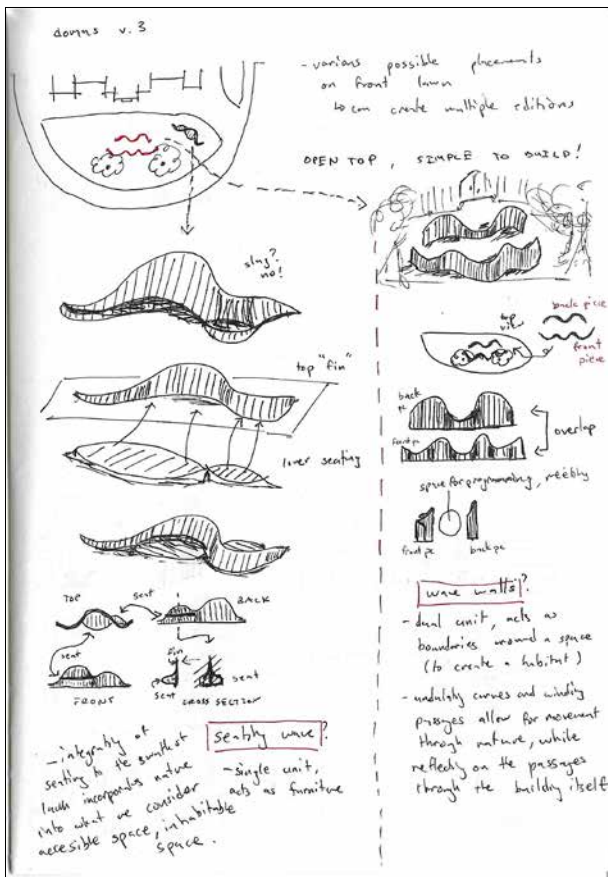 domus v.3
- various possible placements
on front lawn
↳ can create multiple editions
OPEN TOP, SIMPLE TO BUILD!
slug?
no!
top "fin"
lower seating
TOP
seat
BACK
seat
FRONT
fin
seat
seat
CROSS SECTION
- integrating of
seating to the
lawn incorporates nature
into what we consider
accesible space, inhabitable
space.
seating wave?
- single unit,
acts as furniture
top
view
back piece
front
piece
back
pc
front pc
overlap
space for programming, meeting
front pc
back pc
wave walls?
- dual unit, acts as
boundaries around a space
(to create a habitat)
- undulating curves and winding
passages allow for movement
through nature, while
reflecting on the passages
through the building itself